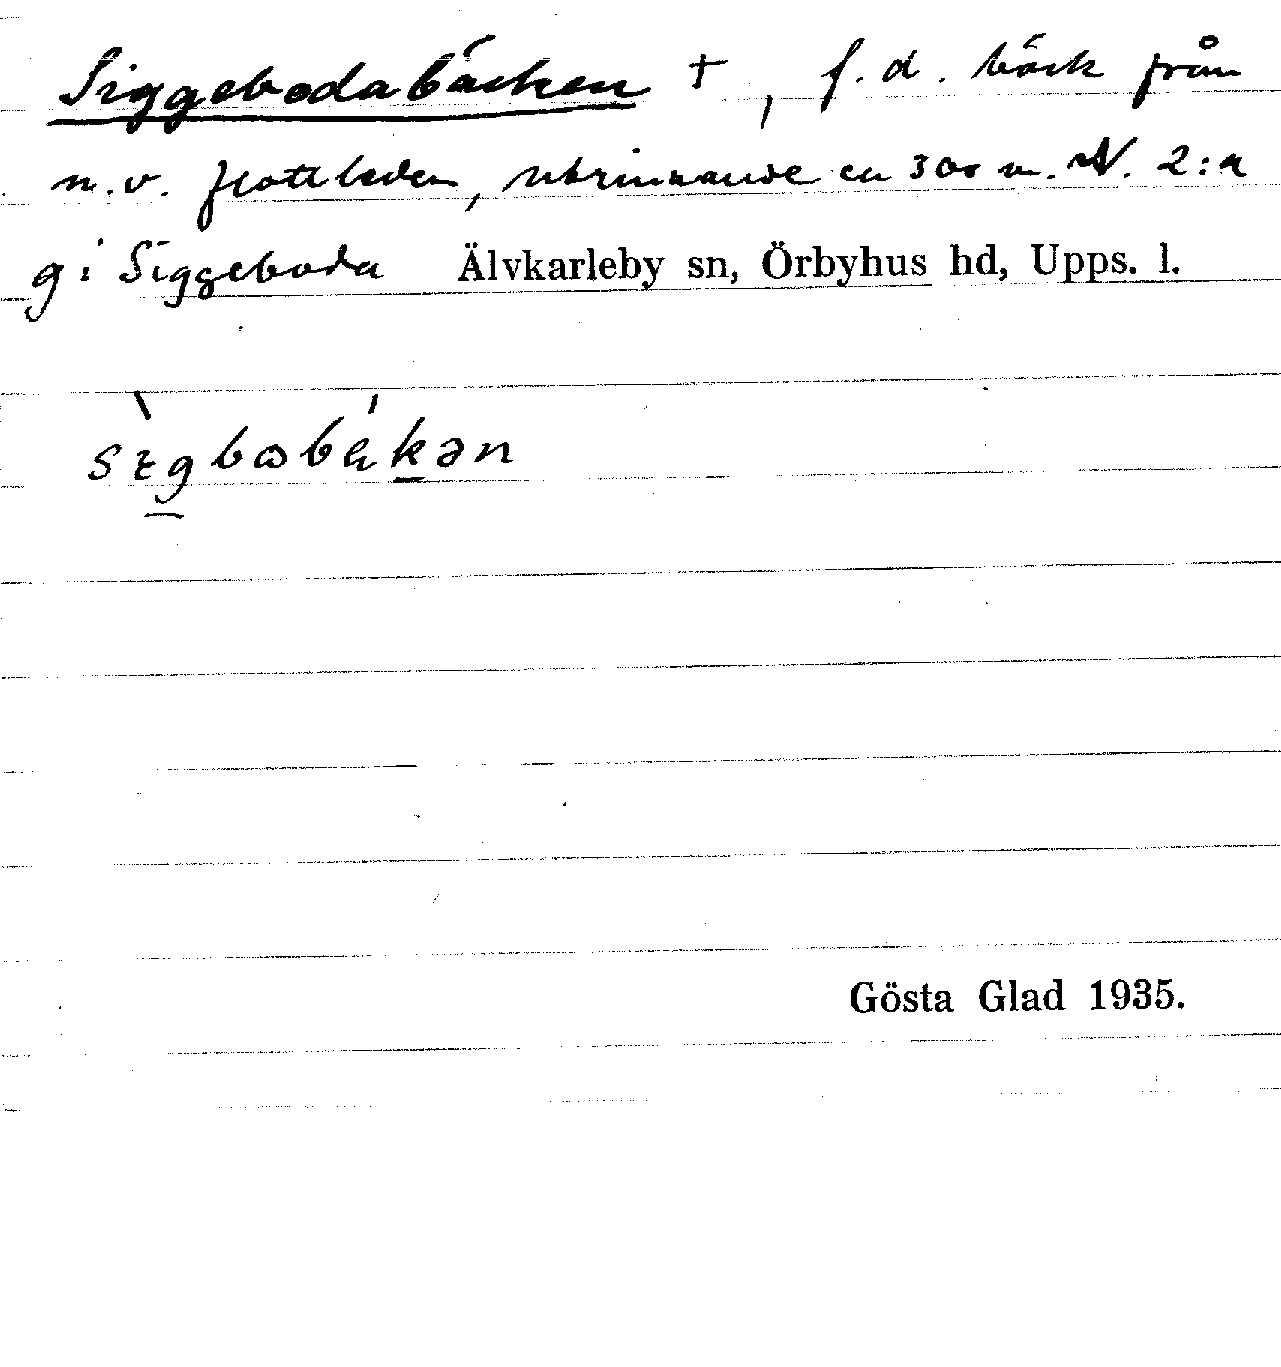 Siggebodabäcken †, f.d. bäck från
n.v. flottleden, utrinnande ca 300 m. N. 2:a
g i Siggeboda Älvkarleby sn, Örbyhus hd, Upps. l.
sɪgbωbäkən
Gösta Glad 1935.